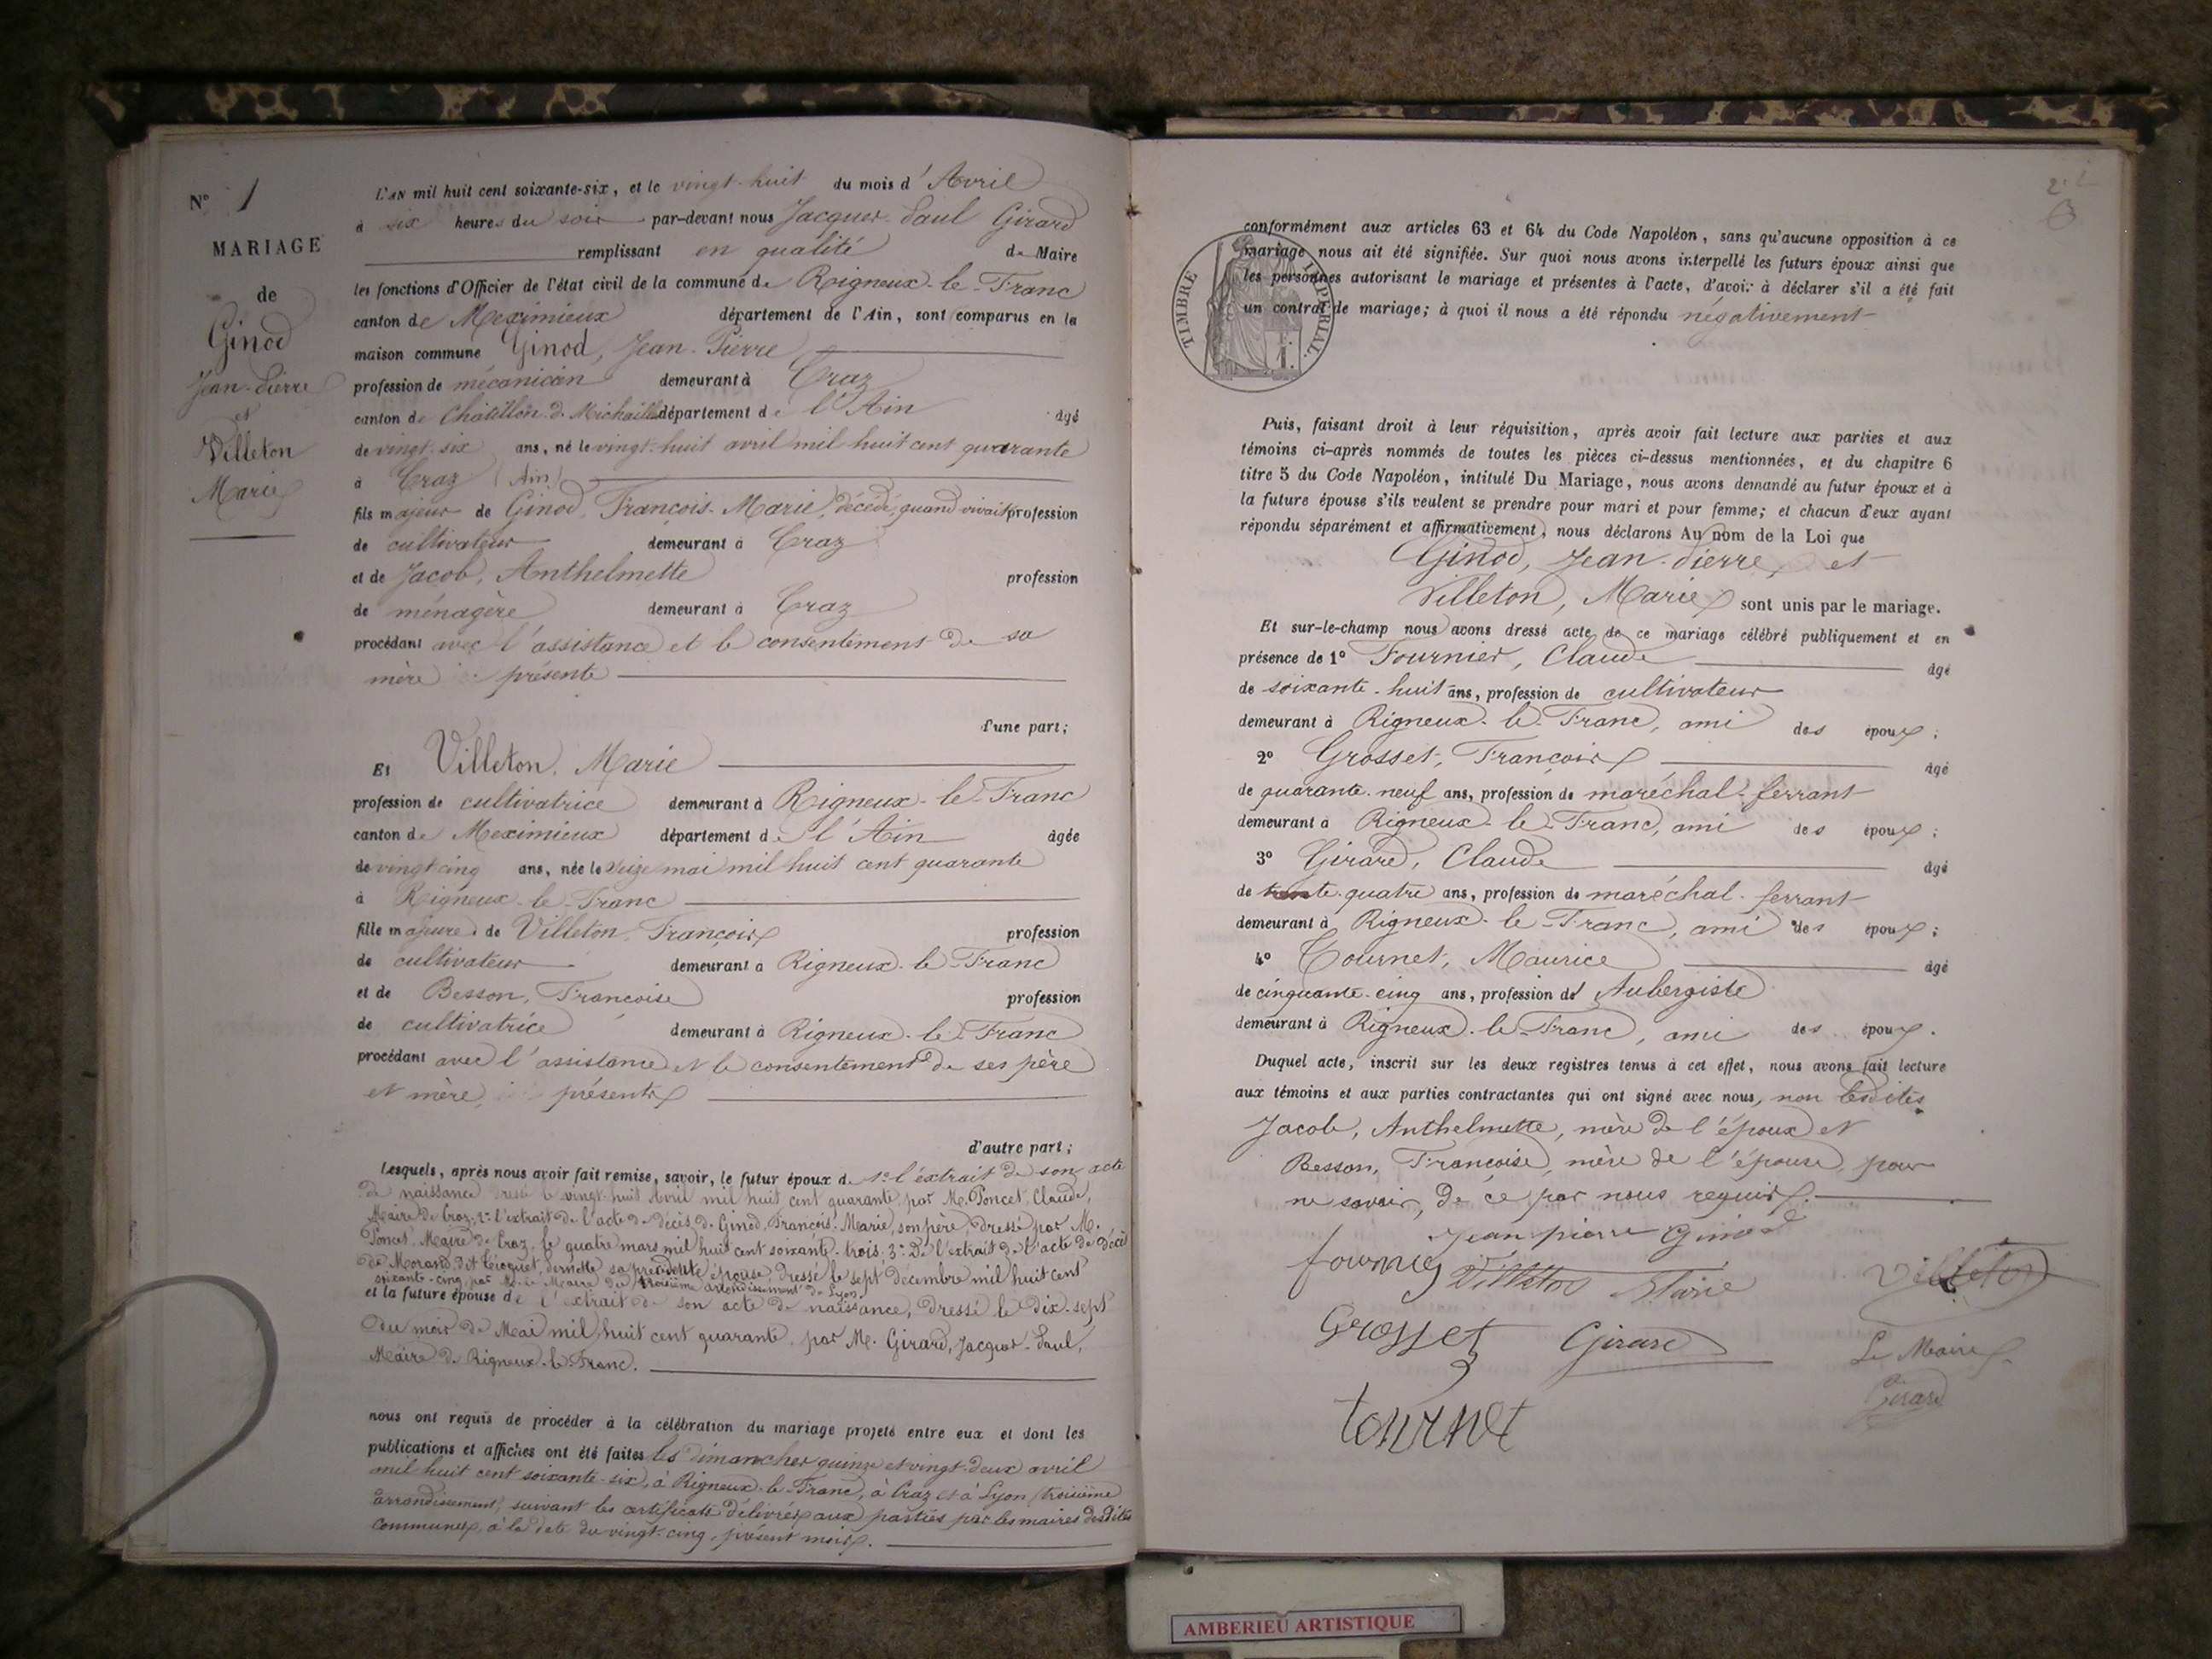 N° 1
MARIAGE
de
Ginod
Jean-Pierre
et
Villeton
Marie
L'AN mil huit cent soixante-six, et le vingt-huit du mois d'Avril
à six heures du soir par-devant nous Jacques-Paul Girard
remplissant en qualité de Maire
les fonctions d'Officier de l'état civil de la commune de Rigneux-le-Franc
canton de Meximieux département de l'Ain, sont comparus en la
maison commune Ginod, Jean-Pierre
profession de mécanicien demeurant à Craz
canton de Châtillon-d-Michaille département de l'Ain âgé
de vingt-six ans, né le vingt-huit avril mil huit cent quarante
à Craz (Ain)
fils majeur de Ginod, François-Marie, décédé, quand vivait profession
de cultivateur demeurant à Craz
et de Jacob, Anthelmette profession
de ménagère demeurant à Craz
procédant avec l'assistance et le consentement de sa
mère présente
d'une part;
Et Villeton, Marie
profession de cultivatrice demeurant à Rigneux-le-Franc
canton de Meximieux département de l'Ain âgée
de vingt-cinq ans, née le seize mai mil huit cent quarante
à Rigneux-le-Franc
fille majeure de Villeton, François profession
de cultivateur demeurant à Rigneux-le-Franc
et de Besson, Françoise profession
de cultivatrice demeurant à Rigneux-le-Franc
procédant avec l'assistance et le consentement de ses père
et mère présents
d'autre part;
Lesquels, après nous avoir fait remise, savoir, le futur époux de 1° l'extrait de son acte
de naissance dressé le vingt-huit Avril mil huit cent quarante, par M. Poncet, Claude,
Maire de Craz; 2° l'extrait de l'acte de décès de Ginod, François-Marie, son père, dressé par M.
Poncet, Maire de Craz, le quatre mars mil huit cent soixante-trois; 3° De l'extrait de l'acte de décès
de Morand dit sa précédente épouse, dressé le sept décembre mil huit cent
soixante-cinq par M. le Maire du troisième arrondissement de Lyon.
et la future épouse de l'extrait de son acte de naissance, dressé le dix-sept
du mois de Mai mil huit cent quarante par M. Girard, Jacques-Paul,
Maire de Rigneux-le-Franc.
nous ont requis de procéder à la célébration du mariage projeté entre eux et dont les
publications et affiches ont été faites les dimanches quinze et vingt-deux avril
mil huit cent soixante-six, à Rigneux-le-Franc, à Craz et à Lyon (troisième
arrondissement) suivant les certificats délivrés aux parties par les maires desdites
communes, à la date du vingt-cinq, présent mois.
conformément aux articles 63 et 64 du Code Napoléon, sans qu'aucune opposition à ce
mariage nous ait été signifiée. Sur quoi nous avons interpellé les futurs époux ainsi que
les personnes autorisant le mariage et présentes à l'acte, d'avoir à déclarer s'il a été fait
un contrat de mariage; à quoi il nous a été répondu négativement
TIMBRE IMPERIAL.
Puis, faisant droit à leur réquisition, après avoir fait lecture aux parties et aux
témoins ci-après nommés de toutes les pièces ci-dessus mentionnées, et du chapitre 6
titre 5 du Code Napoléon, intitulé Du Mariage, nous avons demandé au futur époux et à
la future épouse s'ils veulent se prendre pour mari et pour femme; et chacun d'eux ayant
répondu séparément et affirmativement, nous déclarons Au nom de la Loi que
Ginod, Jean-Pierre, et
Villeton, Marie sont unis par le mariage.
Et sur-le-champ nous avons dressé acte de ce mariage célébré publiquement et en
présence de 1° Fournier, Claude âgé
de soixante-huit ans, profession de cultivateur
demeurant à Rigneux-le-Franc, ami des époux;
2° Grosset, François âgé
de quarante-neuf ans, profession de maréchal-ferrant
demeurant à Rigneux-le-Franc, ami des époux;
3° Girard, Claude âgé
de trente-quatre ans, profession de maréchal-ferrant
demeurant à Rigneux-le-Franc, ami des époux;
4° Tournet, Maurice âgé
de cinquante-cinq ans, profession de Aubergiste
demeurant à Rigneux-le-Franc, ami des époux.
Duquel acte, inscrit sur les deux registres tenus à cet effet, nous avons fait lecture
aux témoins et aux parties contractantes qui ont signé avec nous, non lesdites
Jacob, Anthelmette, mère de l'époux et
Besson, Françoise, mère de l'épouse, pour
ne savoir, de ce par nous requis.
Jean pierre Ginod
fournier Villeton Marie Villeton
Grosset Girard Le Maire
Girard
tournet
AMBERIEU ARTISTIQUE